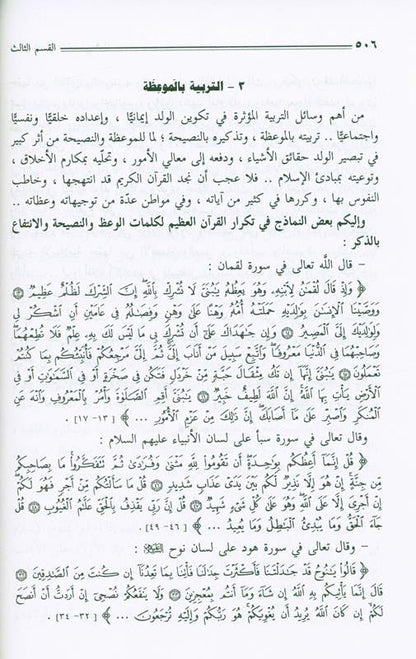 ٥٠٦ القسم الثالث
٣ - التربية بالموعظة
من أهم وسائل التربية المؤثرة في تكوين الولد إيمانيًّا ، وإعداده خلقيًّا ونفسيًّا
واجتماعيًّا .. تربيته بالموعظة ، وتذكيره بالنصيحة ؛ لما للموعظة والنصيحة من أثر كبير
في تبصير الولد حقائق الأشياء ، ودفعه إلى معالي الأمور ، وتحلّيه بمكارم الأخلاق ،
وتوعيته بمبادئ الإسلام .. فلا عجب أن نجد القرآن الكريم قد انتهجها ، وخاطب
النفوس بها ، وكررها في كثير من آياته ، وفي مواطن عدّة من توجيهاته وعظاته ..
وإليكم بعض النماذج في تكرار القرآن العظيم لكلمات الوعظ والنصيحة والانتفاع
بالذكر :
- قال اللَّه تعالى في سورة لقمان :
﴿ وَإِذْ قَالَ لُقْمَٰنُ لِٱبْنِهِۦ وَهُوَ يَعِظُهُۥ يَٰبُنَىَّ لَا تُشْرِكْ بِٱللَّهِ إِنَّ ٱلشِّرْكَ لَظُلْمٌ عَظِيمٌ ۝
وَوَصَّيْنَا ٱلْإِنسَٰنَ بِوَٰلِدَيْهِ حَمَلَتْهُ أُمُّهُۥ وَهْنًا عَلَىٰ وَهْنٍ وَفِصَٰلُهُۥ فِى عَامَيْنِ أَنِ ٱشْكُرْ لِى
وَلِوَٰلِدَيْكَ إِلَىَّ ٱلْمَصِيرُ ۝ وَإِن جَٰهَدَاكَ عَلَىٰٓ أَن تُشْرِكَ بِى مَا لَيْسَ لَكَ بِهِۦ عِلْمٌ فَلَا تُطِعْهُمَا
وَصَاحِبْهُمَا فِى ٱلدُّنْيَا مَعْرُوفًا وَٱتَّبِعْ سَبِيلَ مَنْ أَنَابَ إِلَىَّ ثُمَّ إِلَىَّ مَرْجِعُكُمْ فَأُنَبِّئُكُم بِمَا كُنتُمْ
تَعْمَلُونَ ۝ يَٰبُنَىَّ إِنَّهَآ إِن تَكُ مِثْقَالَ حَبَّةٍ مِّنْ خَرْدَلٍ فَتَكُن فِى صَخْرَةٍ أَوْ فِى ٱلسَّمَٰوَٰتِ أَوْ فِى
ٱلْأَرْضِ يَأْتِ بِهَا ٱللَّهُ إِنَّ ٱللَّهَ لَطِيفٌ خَبِيرٌ ۝ يَٰبُنَىَّ أَقِمِ ٱلصَّلَوٰةَ وَأْمُرْ بِٱلْمَعْرُوفِ وَٱنْهَ عَنِ
ٱلْمُنكَرِ وَٱصْبِرْ عَلَىٰ مَآ أَصَابَكَ إِنَّ ذَٰلِكَ مِنْ عَزْمِ ٱلْأُمُورِ ... ﴾ [ ١٣- ١٧] .
وقال تعالى في سورة سبأ على لسان الأنبياء عليهم السلام :
﴿ قُلْ إِنَّمَآ أَعِظُكُم بِوَٰحِدَةٍ أَن تَقُومُوا۟ لِلَّهِ مَثْنَىٰ وَفُرَٰدَىٰ ثُمَّ تَتَفَكَّرُوا۟ مَا بِصَاحِبِكُم
مِّن جِنَّةٍ إِنْ هُوَ إِلَّا نَذِيرٌ لَّكُم بَيْنَ يَدَىْ عَذَابٍ شَدِيدٍ ۝ قُلْ مَا سَأَلْتُكُم مِّنْ أَجْرٍ فَهُوَ لَكُمْ
إِنْ أَجْرِىَ إِلَّا عَلَى ٱللَّهِ وَهُوَ عَلَىٰ كُلِّ شَىْءٍ شَهِيدٌ ۝ قُلْ إِنَّ رَبِّى يَقْذِفُ بِٱلْحَقِّ عَلَّٰمُ ٱلْغُيُوبِ ۝ قُلْ
جَآءَ ٱلْحَقُّ وَمَا يُبْدِئُ ٱلْبَٰطِلُ وَمَا يُعِيدُ ... ﴾ [ ٤٦- ٤٩] .
- وقال تعالى في سورة هود على لسان نوح
﴿ قَالُوا۟ يَٰنُوحُ قَدْ جَٰدَلْتَنَا فَأَكْثَرْتَ جِدَٰلَنَا فَأْتِنَا بِمَا تَعِدُنَآ إِن كُنتَ مِنَ ٱلصَّٰدِقِينَ ۝
قَالَ إِنَّمَا يَأْتِيكُم بِهِ ٱللَّهُ إِن شَآءَ وَمَآ أَنتُم بِمُعْجِزِينَ ۝ وَلَا يَنفَعُكُمْ نُصْحِىٓ إِنْ أَرَدتُّ أَنْ أَنصَحَ
لَكُمْ إِن كَانَ ٱللَّهُ يُرِيدُ أَن يُغْوِيَكُمْ هُوَ رَبُّكُمْ وَإِلَيْهِ تُرْجَعُونَ ... ﴾ [ ٣٢- ٣٤] .